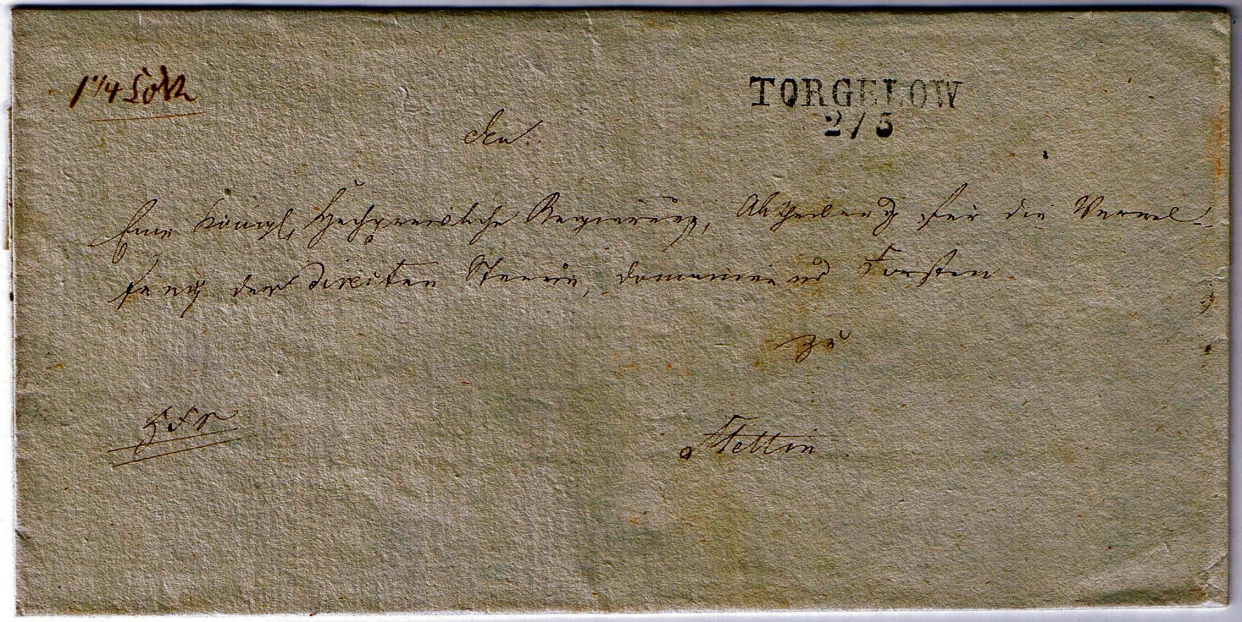 1 1/4 Loth
TORGELOW
2/5
Eine Königl. Hochpreisliche Regierung, Abtheilung für die Verwal-
tung der direkten Steuern, Domainen und Forsten
zu
Stettin